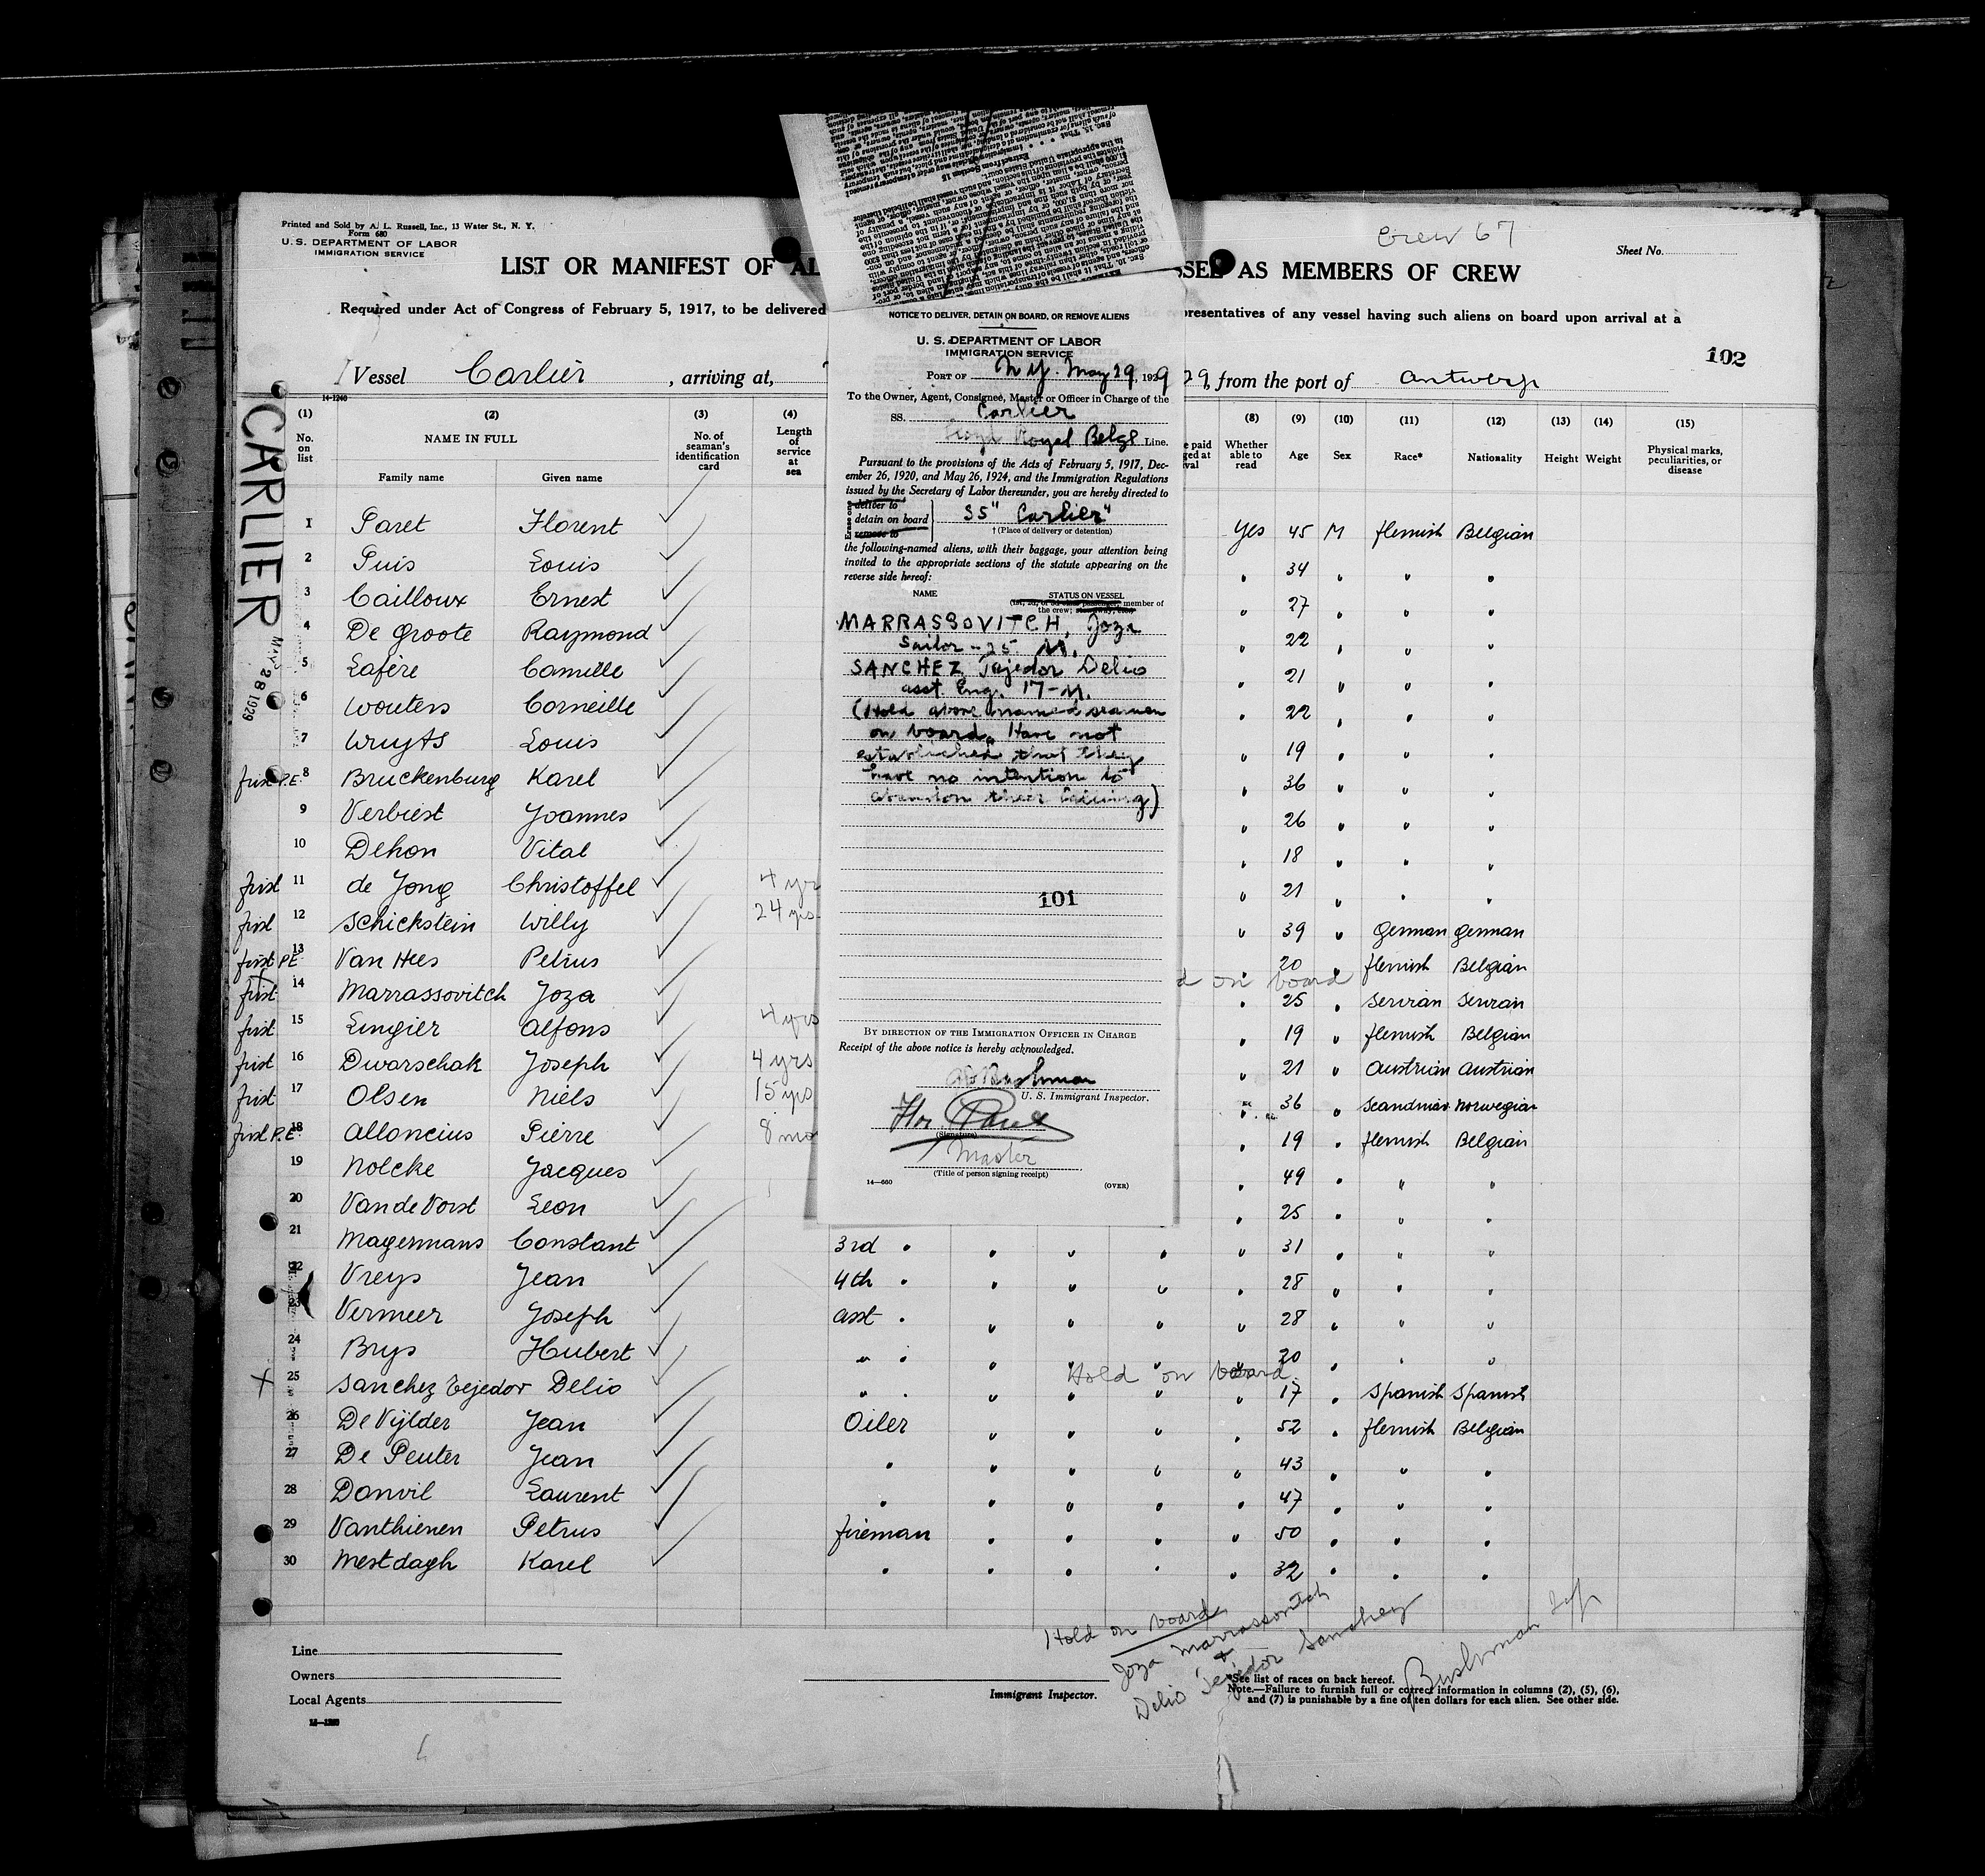 Crew 67
Printed and Sold by A. L. Russell, Inc., 13 Water St., N. Y.
Form 680
U. S. DEPARTMENT OF LABOR
IMMIGRATION SERVICE
Sheet No.
LIST OR MANIFEST OF AL
SSEL AS MEMBERS OF CREW
Required under Act of Congress of February 5, 1917, to be delivered
representatives of any vessel having such aliens on board upon arrival at a
102
Vessel Carlier , arriving at,
29, from the port of Antwerp
14-1240
CARLIER
May 28 1929
(1) (2) (3) (4) (8) (9) (10) (11) (12) (13) (14) (15)
No. on list
NAME IN FULL
Family name Given name
No. of seaman's identification card
Length of service at sea
Whether able to read
Age Sex Race* Nationality Height Weight
Physical marks, peculiarities, or disease
1 Paret Florent Yes 45 M flemish Belgian
2 Puis Louis " 34 " " "
3 Cailloux Ernest " 27 " " "
4 De Groote Raymond " 22 " " "
5 Lafère Camille " 21 " " "
6 Wouters Corneille " 22 " " "
7 Wuyts Louis " 19 " " "
first P.E. 8 Bruckenburg Karel " 36 " " "
9 Verbiest Joannes " 26 " " "
10 Dehon Vital " 18 " " "
first 11 de Jong Christoffel 4 yrs " 21 " " "
first 12 Schickstein Willy 24 yrs " 39 " German German
first P.E. 13 Van Hees Petrus " 20 " flemish Belgian
d on board
first 14 Marrassovitch Joza " 25 " Servian Servian
first 15 Lingier Alfons 4 yrs " 19 " flemish Belgian
first 16 Dwarschak Joseph 4 yrs " 21 " Austrian Austrian
first 17 Olsen Niels 15 yrs " 36 " Scandinav. Norwegian
first P.E. 18 Alloncius Pierre 8 mo " 19 " flemish Belgian
19 Nolcke Jacques " 49 " " "
20 Van de Vorst Leon " 25 " " "
21 Magermans Constant 3rd " " " " " 31 " " "
22 Vreys Jean 4th " " " " " 28 " " "
23 Vermeer Joseph asst " " " " " 28 " " "
24 Brys Hubert " " " " " " 20 " " "
Hold on board
X 25 Sanchez Tejedor Delio " " " " " " 17 " Spanish Spanish
26 De Vijlder Jean Oiler " " " " 52 " flemish Belgian
27 De Peuter Jean " " " " " 43 " " "
28 Danvil Laurent " " " " " 47 " " "
29 Vanthienen Petrus fireman " " " " 50 " " "
30 Mestdagh Karel " " " " " 32 " " "
Hold on board
Joza Marrassovitch
+
Delio Tejedor Sanchez
Bushman
Line
Owners
Local Agents
Immigrant Inspector.
*See list of races on back hereof.
Note.—Failure to furnish full or correct information in columns (2), (5), (6),
and (7) is punishable by a fine of ten dollars for each alien. See other side.
NOTICE TO DELIVER, DETAIN ON BOARD, OR REMOVE ALIENS
U. S. DEPARTMENT OF LABOR
IMMIGRATION SERVICE
PORT OF N.Y. May 29, 1929
To the Owner, Agent, Consignee, Master or Officer in Charge of the
SS. Carlier
Lloyd Royal Belge Line.
Pursuant to the provisions of the Acts of February 5, 1917, Dec-
ember 26, 1920, and May 26, 1924, and the Immigration Regulations
issued by the Secretary of Labor thereunder, you are hereby directed to
Erase one
deliver to
detain on board
remove to
SS "Carlier"
† (Place of delivery or detention)
the following-named aliens, with their baggage, your attention being
invited to the appropriate sections of the statute appearing on the
reverse side hereof:
NAME STATUS ON VESSEL
(1st, 2d, or 3d class passenger, member of
the crew;
MARRASSOVITCH, Joza
Sailor - 25 M.
SANCHEZ Tejedor Delio
asst. Eng. 17 - M.
(Hold above named seamen
on board. Have not
established that they
have no intention to
abandon their calling)
101
BY DIRECTION OF THE IMMIGRATION OFFICER IN CHARGE
Receipt of the above notice is hereby acknowledged.
Bushman
U. S. Immigrant Inspector.
Flor. Paret
(Signature)
Master
(Title of person signing receipt)
14—660
(OVER)